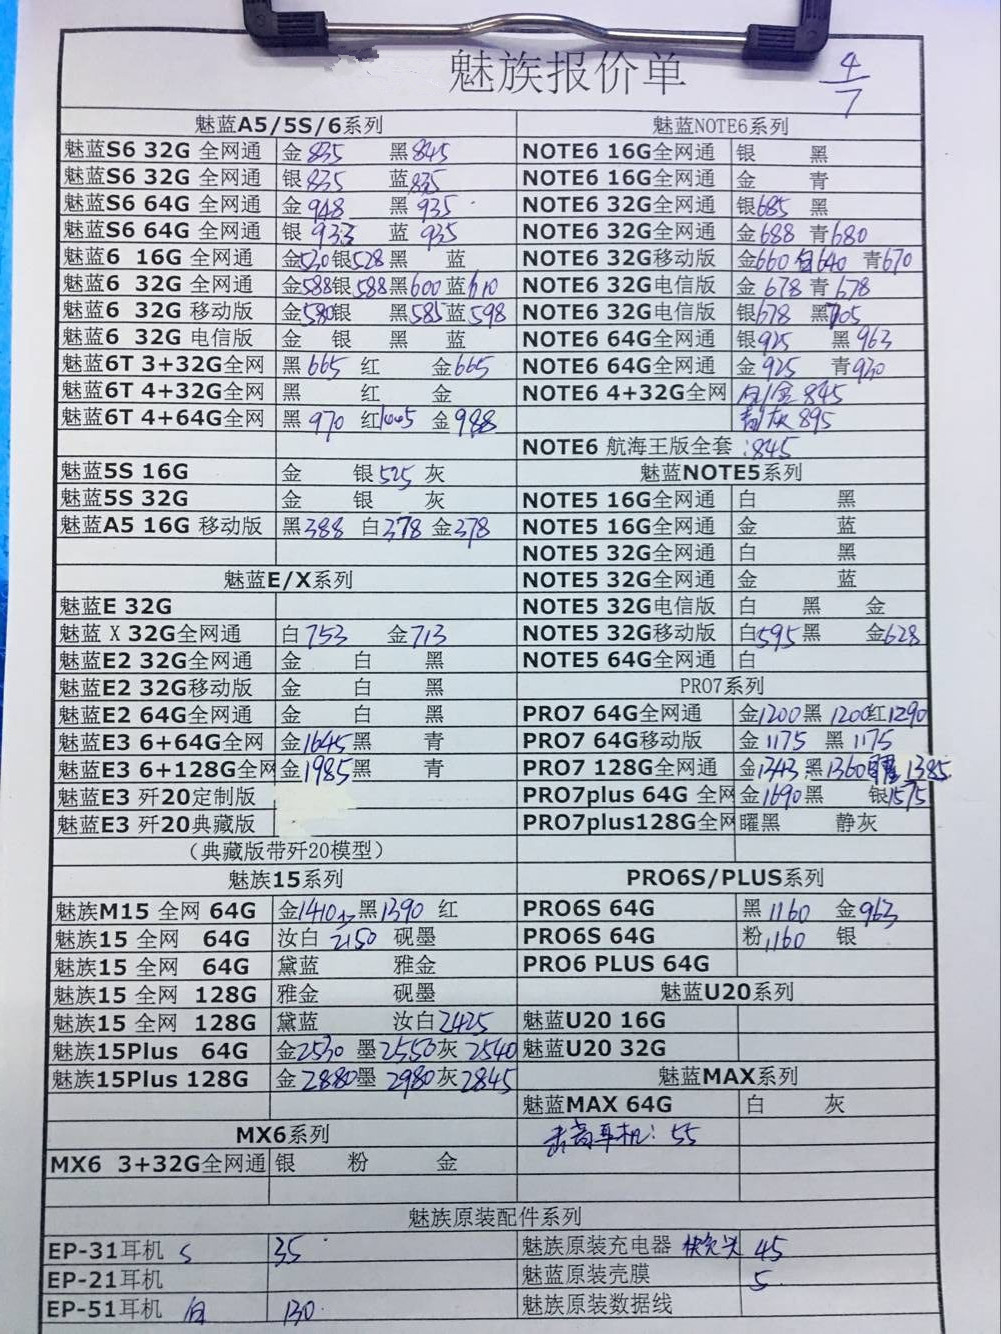 魅族报价单 4/7
魅蓝A5/5S/6系列
魅蓝S6 32G 全网通 金 835 黑 845
魅蓝S6 32G 全网通 银 835 蓝 835
魅蓝S6 64G 全网通 金 948 黑 935
魅蓝S6 64G 全网通 银 933 蓝 935
魅蓝6 16G 全网通 金530 银528 黑 蓝
魅蓝6 32G 全网通 金588 银588 黑600 蓝610
魅蓝6 32G 移动版 金580 银 黑585 蓝598
魅蓝6 32G 电信版 金 银 黑 蓝
魅蓝6T 3+32G全网 黑 665 红 金665
魅蓝6T 4+32G全网 黑 红 金
魅蓝6T 4+64G全网 黑 970 红1005 金988
魅蓝5S 16G 金 银525 灰
魅蓝5S 32G 金 银 灰
魅蓝A5 16G 移动版 黑388 白378 金378
魅蓝E/X系列
魅蓝E 32G
魅蓝 X 32G全网通 白753 金713
魅蓝E2 32G全网通 金 白 黑
魅蓝E2 32G移动版 金 白 黑
魅蓝E2 64G全网通 金 白 黑
魅蓝E3 6+64G全网 金1645 黑 青
魅蓝E3 6+128G全网 金1985 黑 青
魅蓝E3 歼20定制版
魅蓝E3 歼20典藏版
（典藏版带歼20模型）
魅族15系列
魅族M15 全网 64G 金1410 黑1390 红
魅族15 全网 64G 汝白 2150 砚墨
魅族15 全网 64G 黛蓝 雅金
魅族15 全网 128G 雅金 砚墨
魅族15 全网 128G 黛蓝 汝白2425
魅族15Plus 64G 金2530 墨2550 灰 2540
魅族15Plus 128G 金2880 墨 2980 灰2845
MX6系列
MX6 3+32G全网通 银 粉 金
魅蓝NOTE6系列
NOTE6 16G全网通 银 黑
NOTE6 16G全网通 金 青
NOTE6 32G全网通 银685 黑
NOTE6 32G全网通 金688 青680
NOTE6 32G移动版 金660 白640 青670
NOTE6 32G电信版 金 678 青 678
NOTE6 32G电信版 银678 黑705
NOTE6 64G全网通 银925 黑 963
NOTE6 64G全网通 金 925 青930
NOTE6 4+32G全网 白/金 845
青/灰 895
NOTE6 航海王版全套 :845
魅蓝NOTE5系列
NOTE5 16G全网通 白 黑
NOTE5 16G全网通 金 蓝
NOTE5 32G全网通 白 黑
NOTE5 32G全网通 金 蓝
NOTE5 32G电信版 白 黑 金
NOTE5 32G移动版 白595 黑 金628
NOTE5 64G全网通 白
PRO7系列
PRO7 64G全网通 金1200 黑 1200 红1290
PRO7 64G移动版 金 1175 黑 1175
PRO7 128G全网通 金1343 黑1360 1385
PRO7plus 64G 全网 金1690 黑 银1575
PRO7plus128G全网 曜黑 静灰
PRO6S/PLUS系列
PRO6S 64G 黑 1160 金963
PRO6S 64G 粉1160 银
PRO6 PLUS 64G
魅蓝U20系列
魅蓝U20 16G
魅蓝U20 32G
魅蓝MAX系列
魅蓝MAX 64G 白 灰
耳机: 55
魅族原装配件系列
EP-31耳机 S 35
EP-21耳机
EP-51耳机 白 130
魅族原装充电器 快充头 45
魅蓝原装壳膜 5
魅族原装数据线